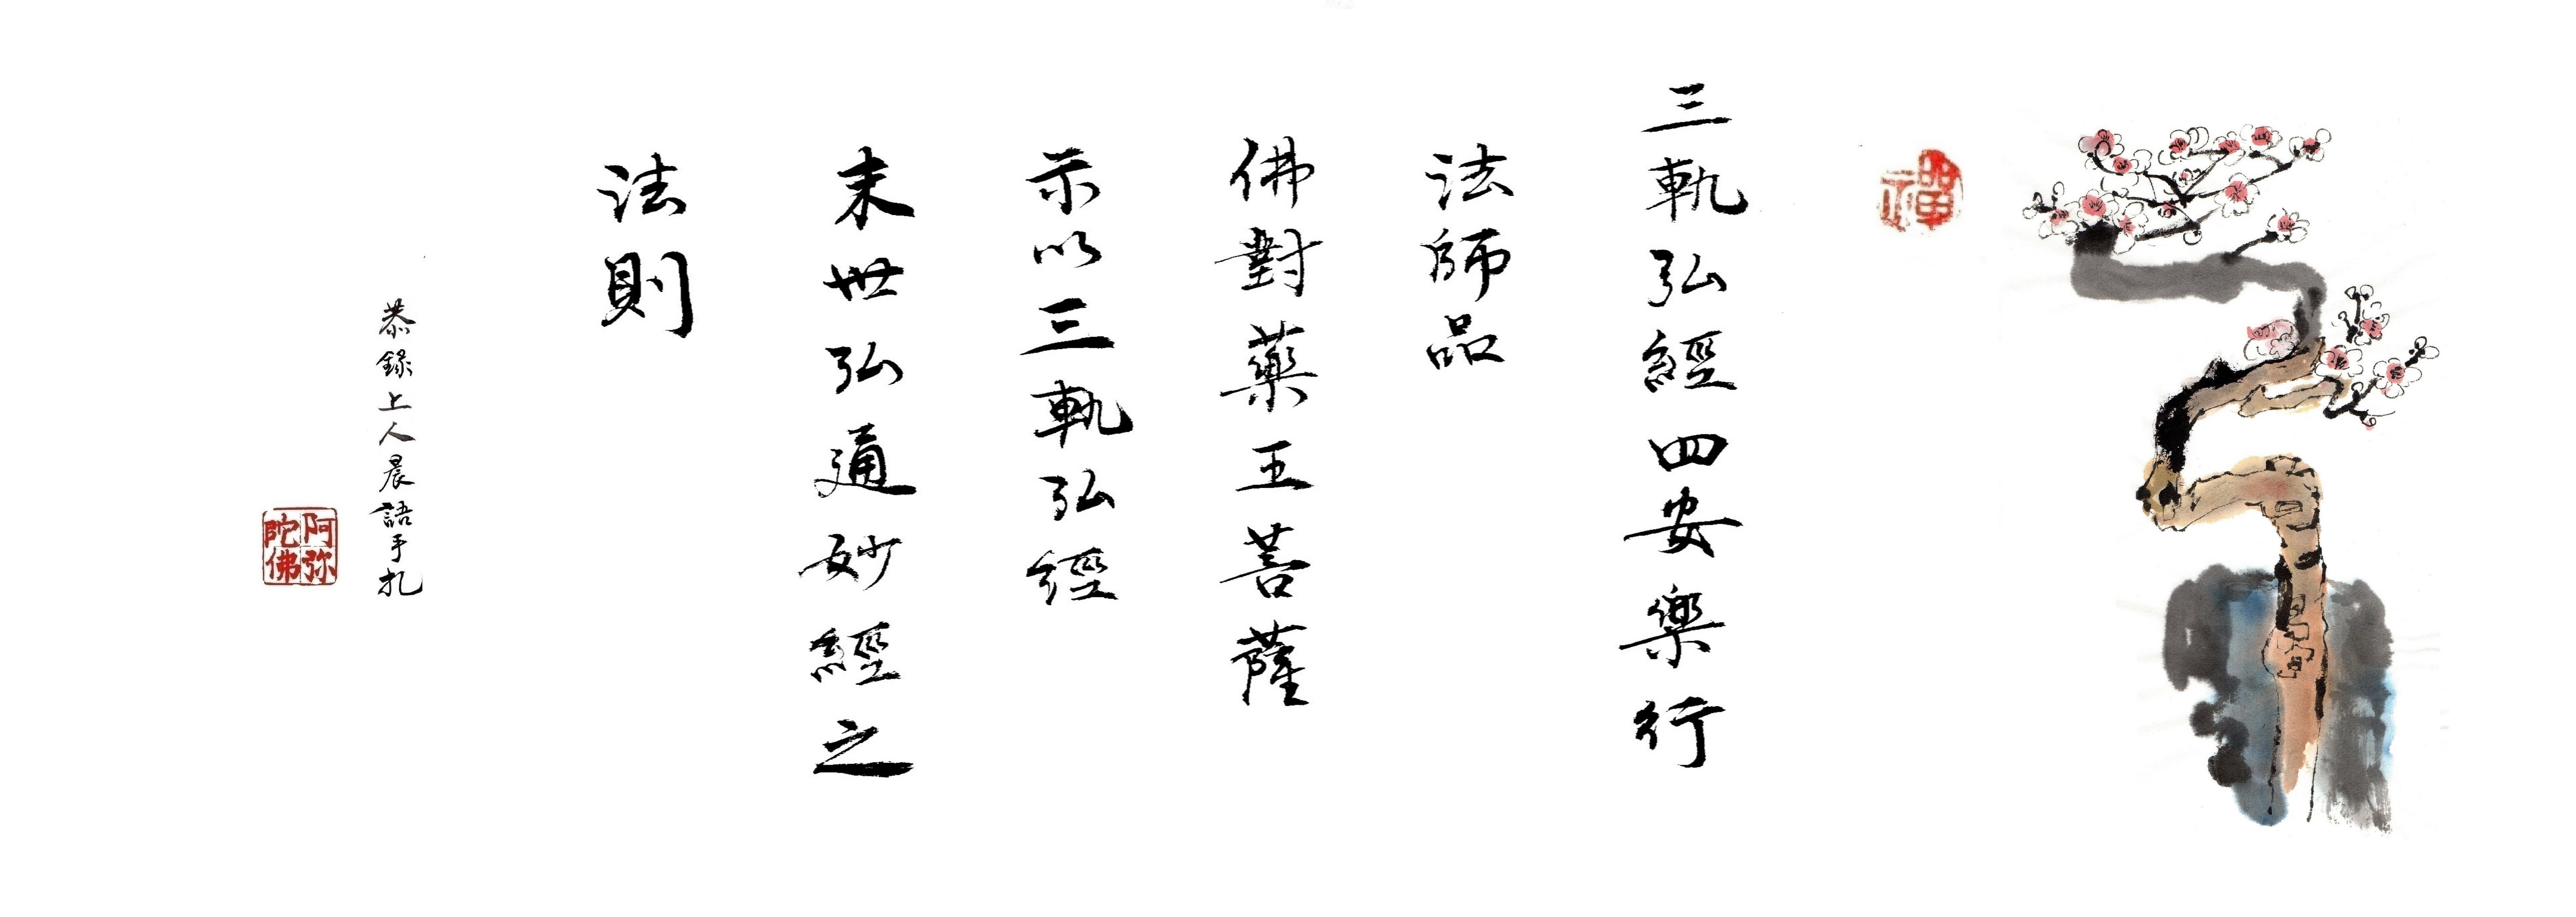 禪
三軌弘經四安樂行
法師品
佛對藥王菩薩
示以三軌弘經
末世弘通妙經之
法則
恭錄上人晨語手札
阿弥陀佛